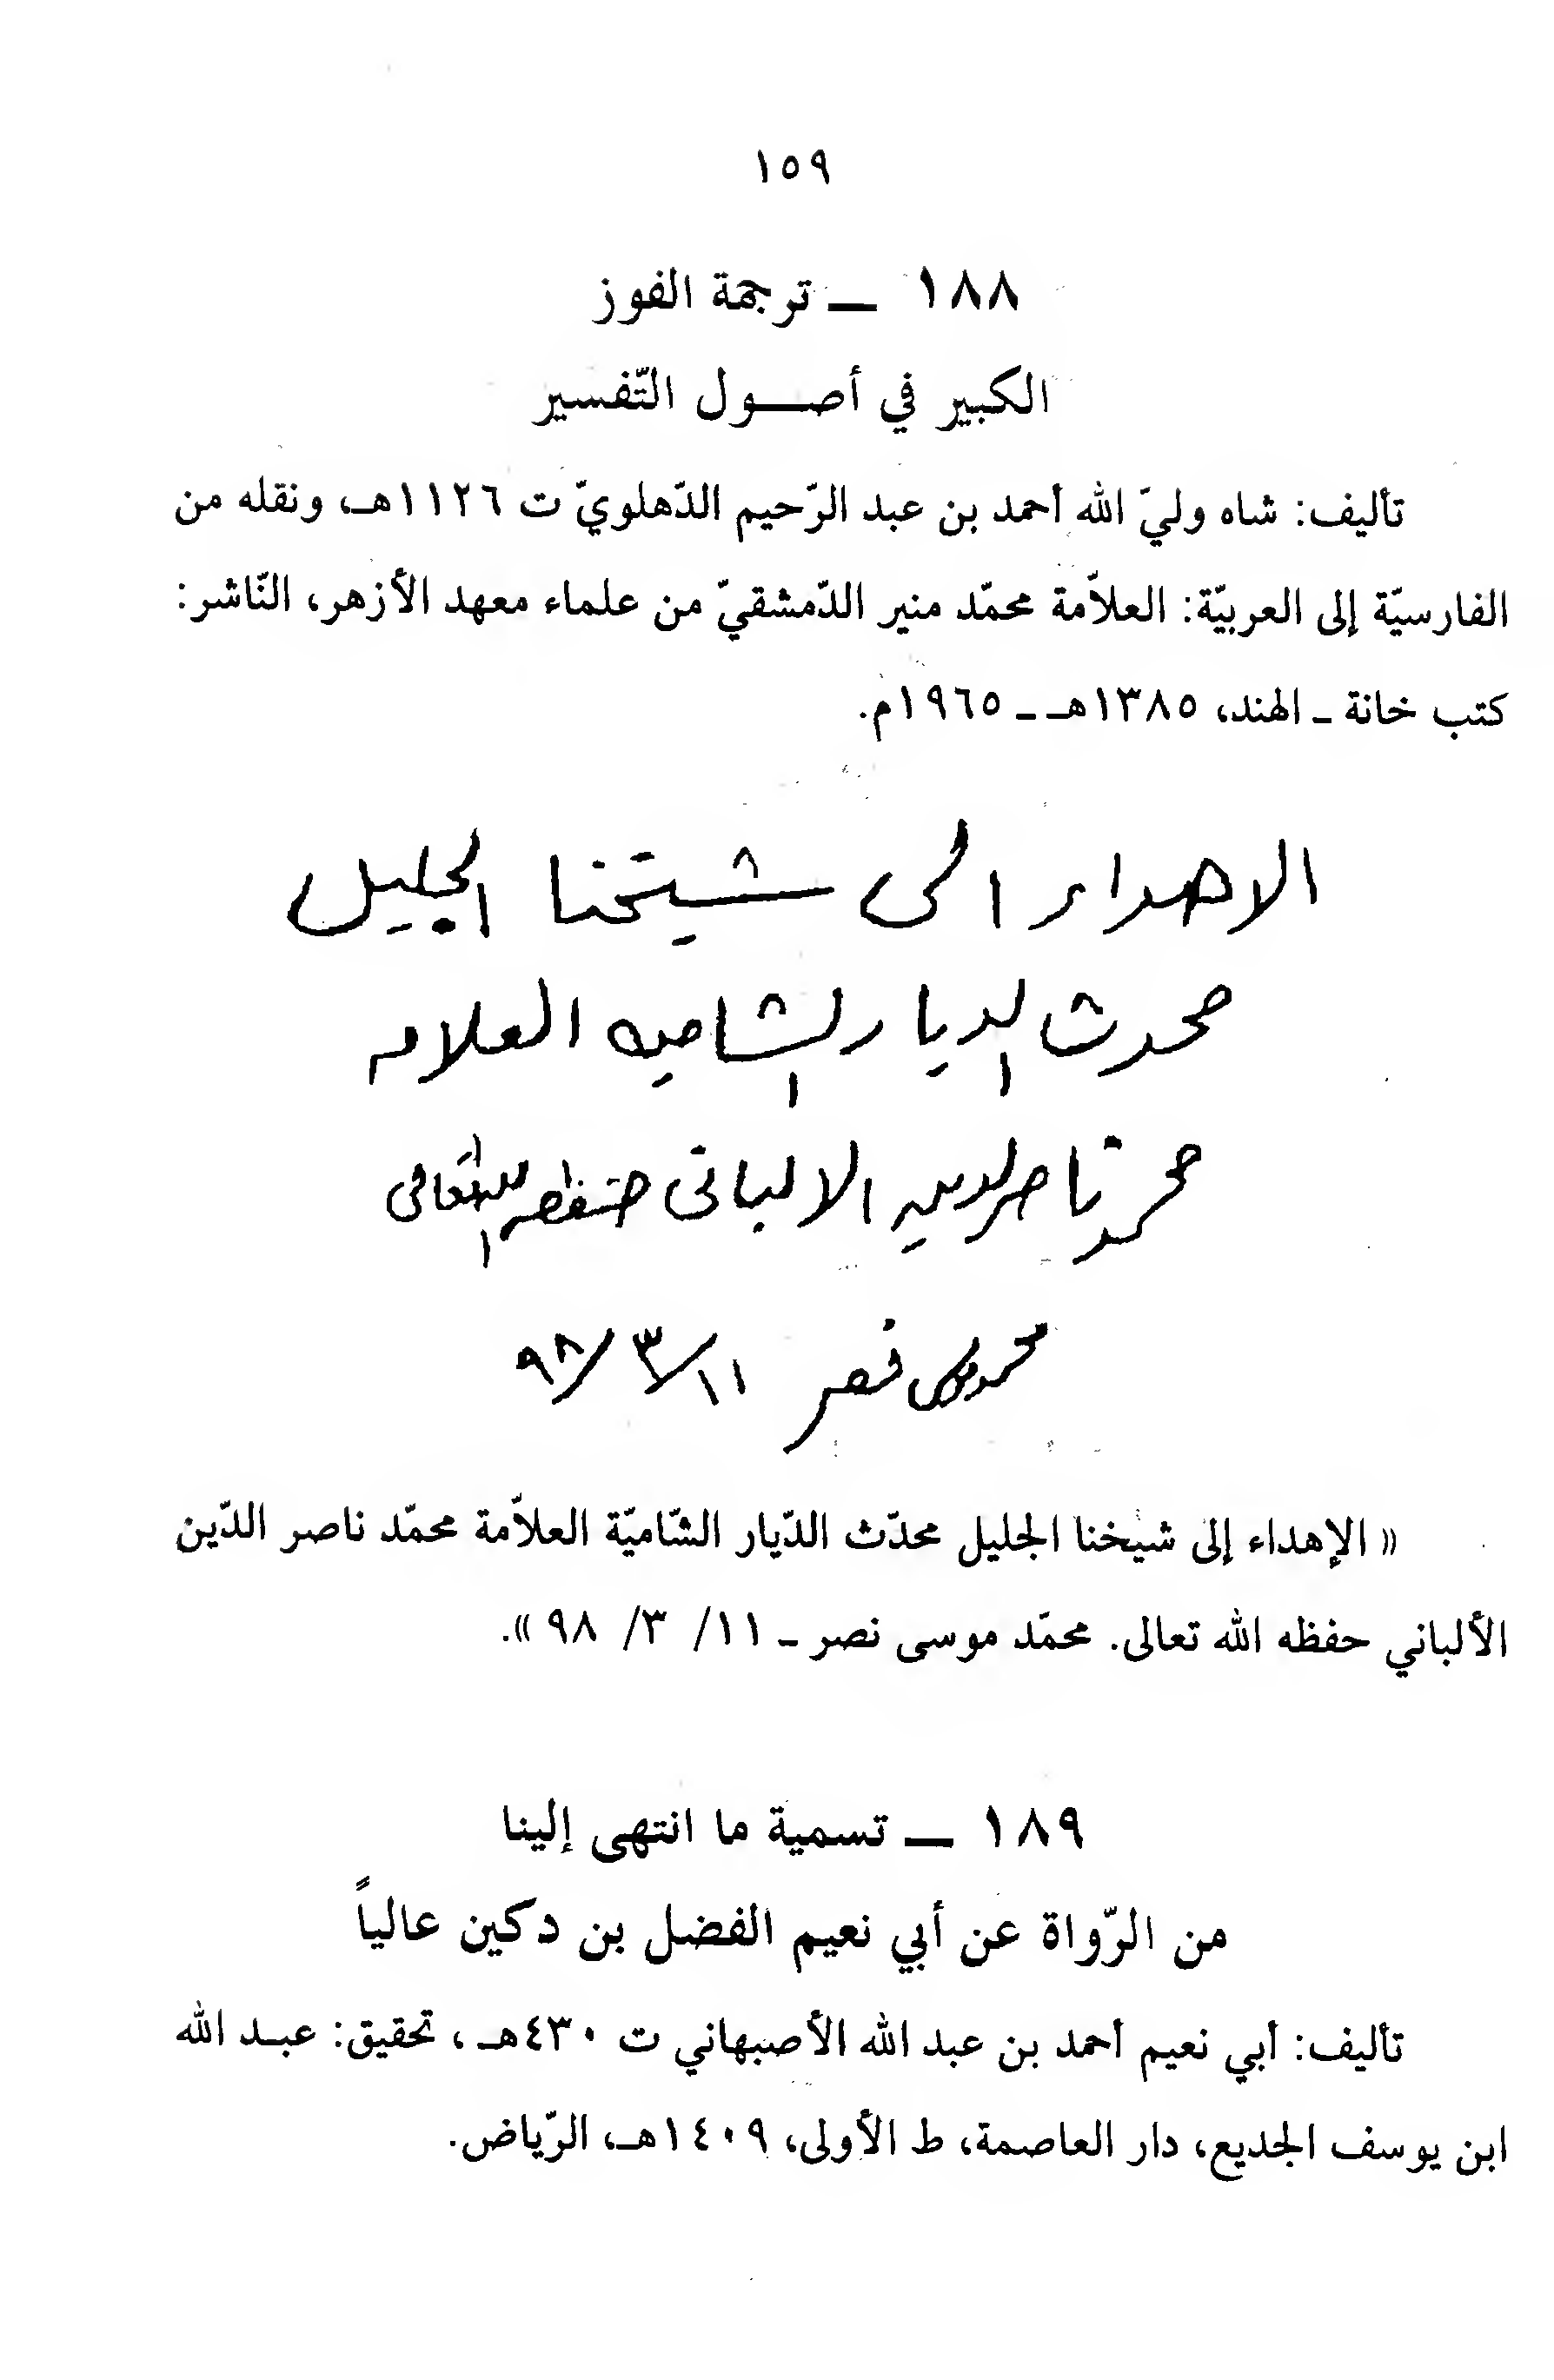 ١٥٩
١٨٨ ــ ترجمة الفوز
الكبير في أصـــول التّفسير
تأليف: شاه وليّ الله أحمد بن عبد الرّحيم الدّهلويّ ت ١١٢٦هـ، ونقله من
الفارسيّة إلى العربيّة: العلاّمة محمّد منير الدّمشقيّ من علماء معهد الأزهر، النّاشر:
كتب خانة ـ الهند، ١٣٨٥هـ ـ ١٩٦٥م.
الاهداء الى شيخنا الجليل
محدث الديار الشاميه العلامه
محمد ناصر الدين الالبانى حفظه الله تعالى
محمد موسى نصر ١١/٣/٩٨
« الإهداء إلى شيخنا الجليل محدّث الدّيار الشّاميّة العلاّمة محمّد ناصر الدّين
الألباني حفظه الله تعالى. محمّد موسى نصر ـ ١١/ ٣/ ٩٨ ».
١٨٩ ــ تسمية ما انتهى إلينا
من الرّواة عن أبي نعيم الفضل بن دكين عالياً
تأليف: أبي نعيم أحمد بن عبد الله الأصبهاني ت ٤٣٠هـ ، تحقيق: عبـد الله
ابن يوسف الجديع، دار العاصمة، ط الأولى، ١٤٠٩هـ، الرّياض.